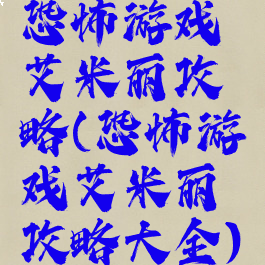 恐怖游戏
艾米丽攻
略(恐怖游
戏艾米丽
攻略大全)